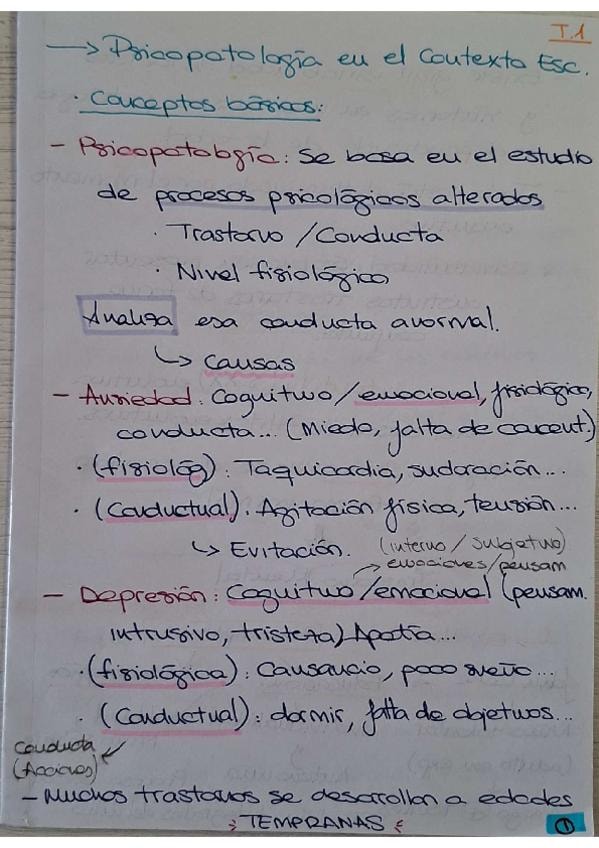 T.1
→ Psicopatología en el Contexto Esc.
· Conceptos básicos:
- Psicopatología: Se basa en el estudio
de procesos psicológicos alterados
· Trastorno / Conducta
· Nivel fisiológico
Analiza esa conducta anormal.
↳ Causas
- Ansiedad: Cognitivo / emocional, fisiológico,
conducta... (Miedo, falta de concent.)
· (fisiológ): Taquicardia, sudoración...
· (Conductual). Agitación física, tensión...
↳ Evitación. (interno / subjetivo)
→ emociones/pensam
- Depresión: Cognitivo / emocional (pensam.
intrusivo, tristeza) Apatía...
· (fisiológica): Cansancio, poco sueño...
· (Conductual): dormir, falta de objetivos...
Conducta
(Acciones)
- Muchos trastornos se desarrollan a edades
TEMPRANAS
1